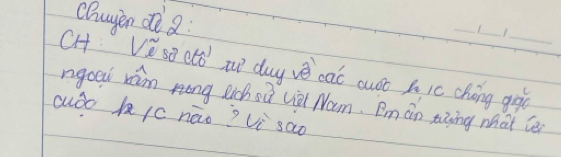 Chuyên đề 2:
CH: Vẽ sơ đồ tư duy về các cuộc k/c chống giặc
ngoại xâm trong lịch sử Việt Nam. Em ấn tượng nhất với
cuộc k/c nào? Vì sao